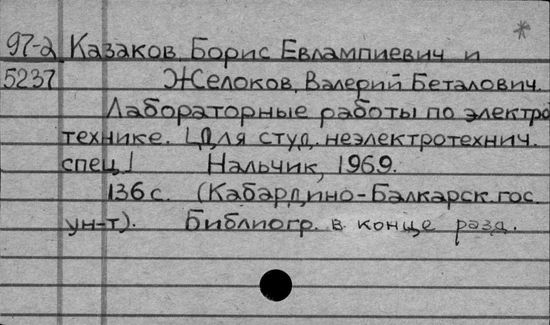 97-2 Казаков, Борис Евлампиевич и
5237 Желоков, Валерий Беталович.
Лабораторные работы по электро
технике. [Для студ. неэлектротехнич.
спец.] Нальчик, 1969.
136 с. (Кабардино-Балкарск. гос.
ун-т). Библиогр. в конце разд.